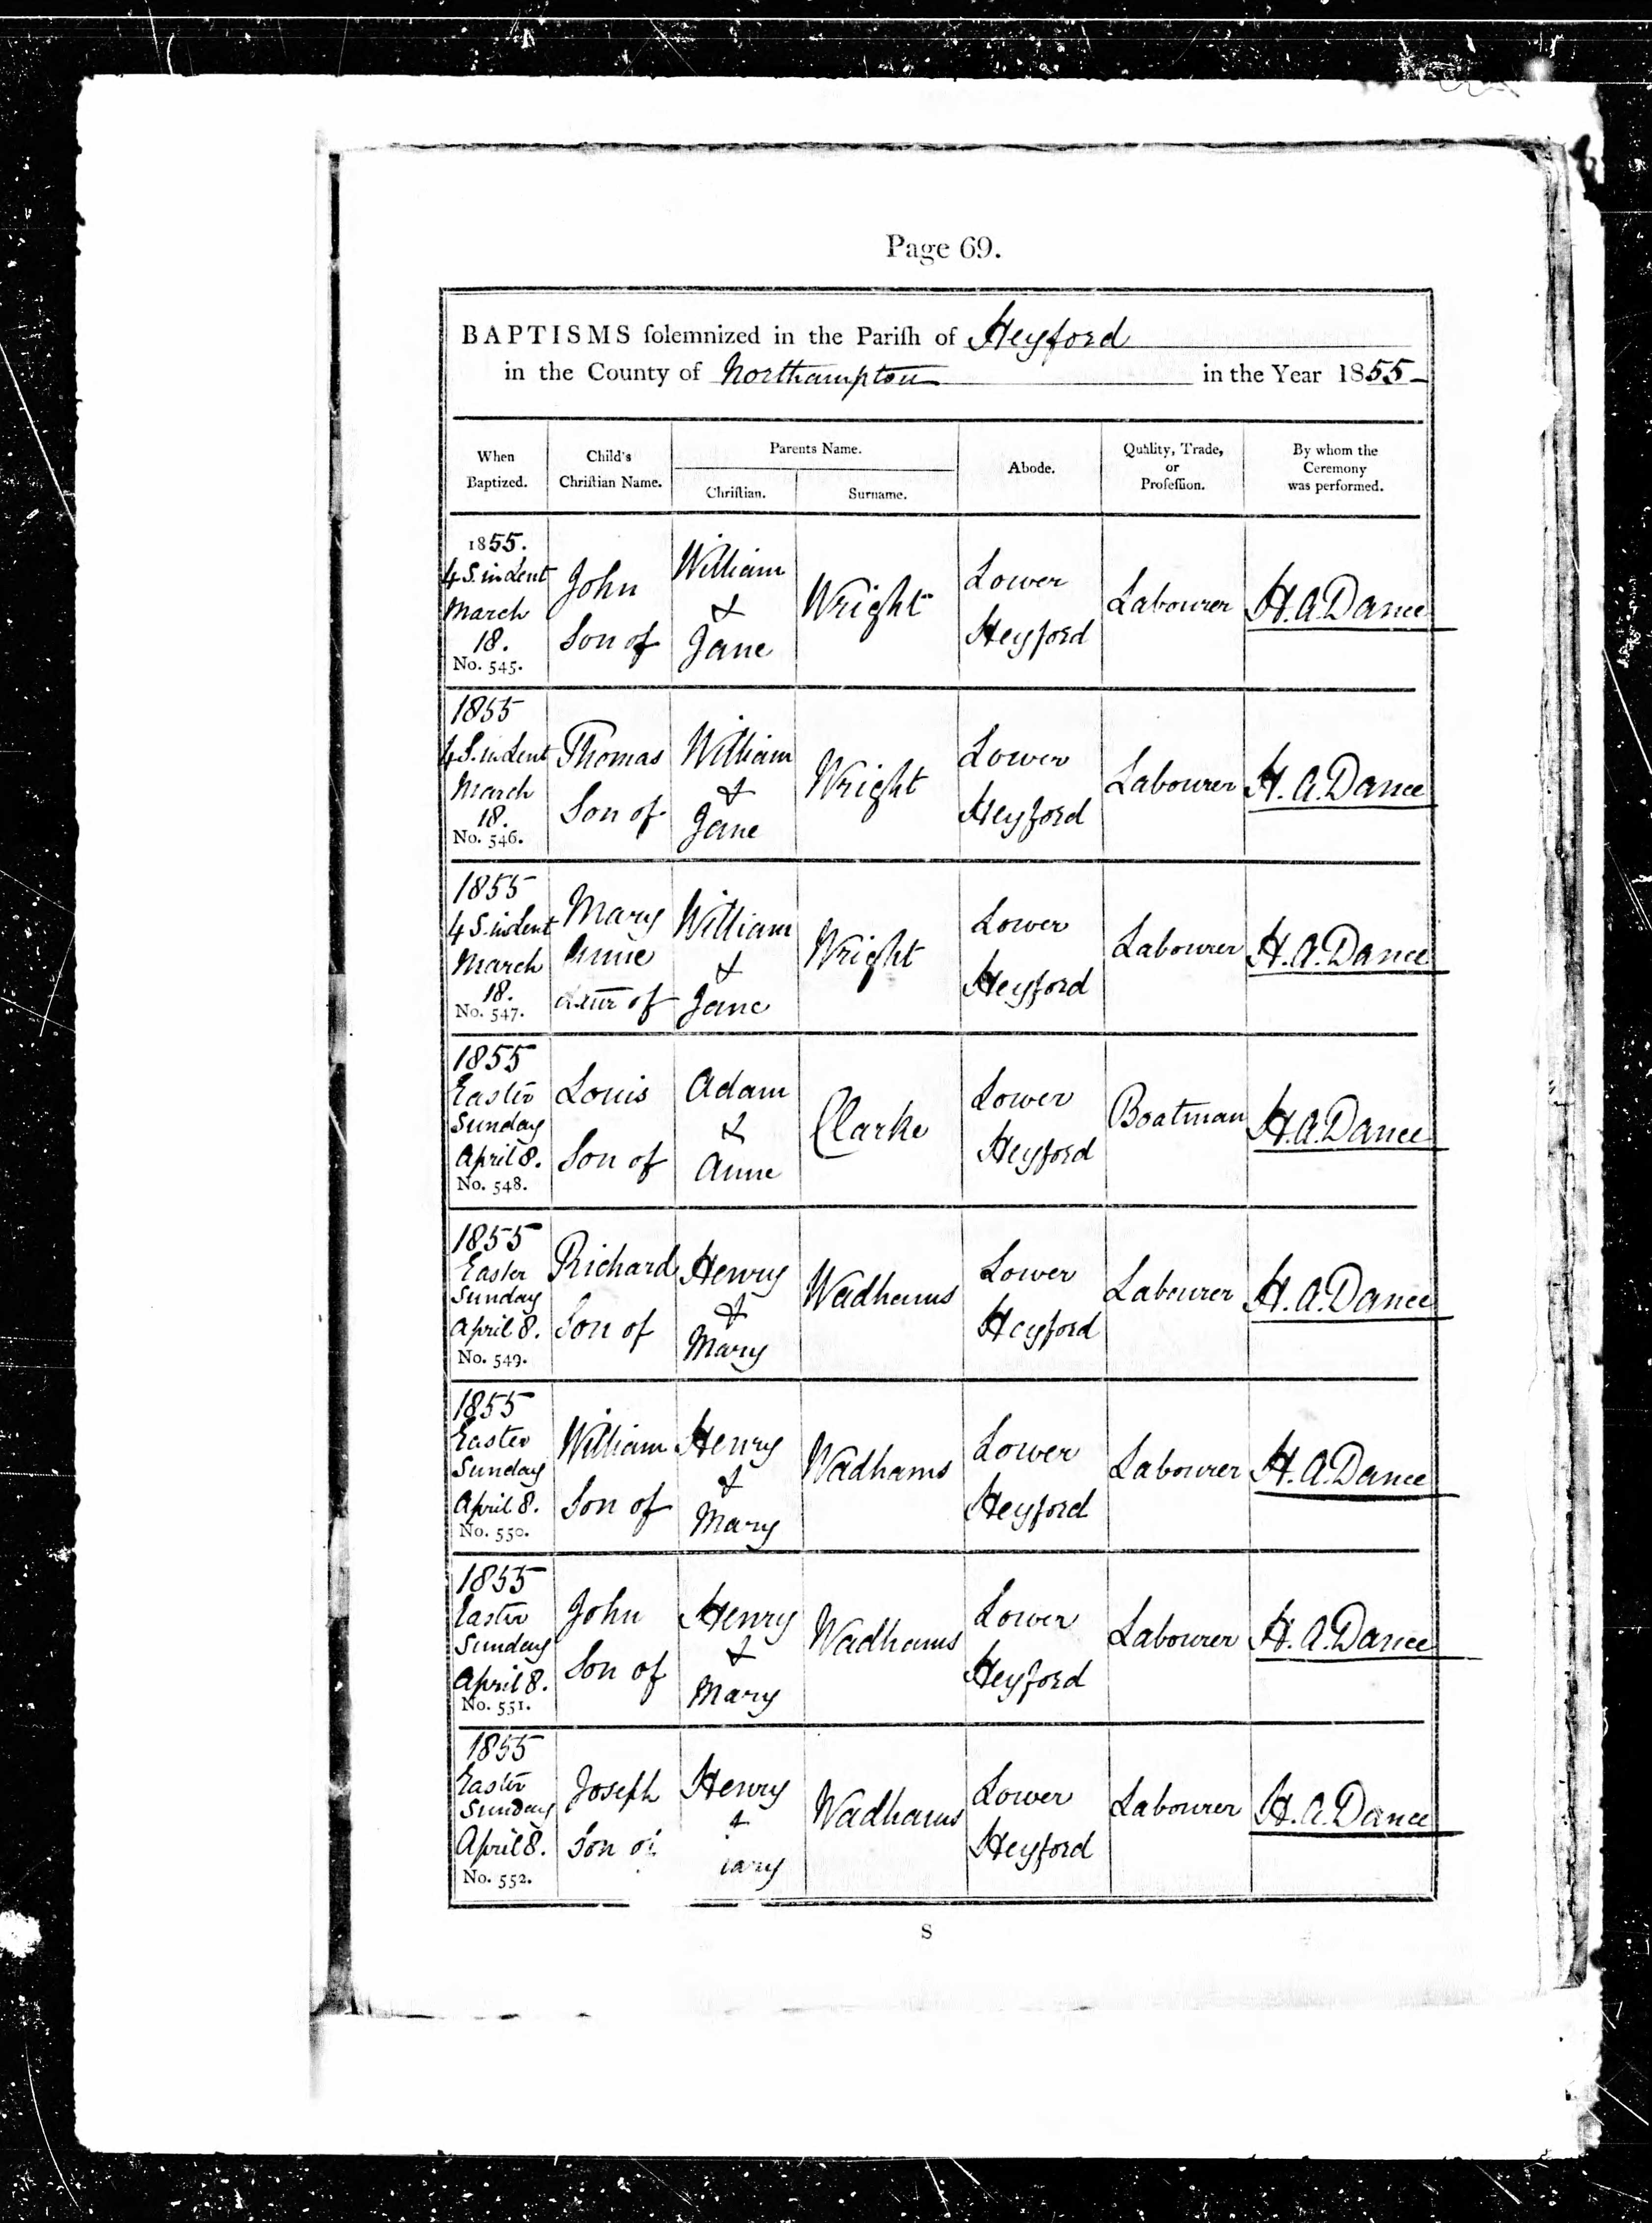 Page 69.
BAPTISMS solemnized in the Parish of Heyford
in the County of Northampton in the Year 1855-
When Baptized.
Child's Christian Name.
Parents Name.
Christian.
Surname.
Abode.
Quality, Trade, or Profession.
By whom the Ceremony was performed.
1855.
4 S. in Lent
March
18.
No. 545.
John
Son of
William
&
Jane
Wright
Lower
Heyford
Labourer
H. A. Dance
1855
4 S. in Lent
March
18.
No. 546.
Thomas
Son of
William
&
Jane
Wright
Lower
Heyford
Labourer
H. A. Dance
1855
4 S. in Lent
March
18.
No. 547.
Mary
Annie
of
William
&
Jane
Wright
Lower
Heyford
Labourer
H. A. Dance
1855
Easter
Sunday
April 8.
No. 548.
Louis
Son of
Adam
&
Anne
Clarke
Lower
Heyford
Boatman
H. A. Dance
1855
Easter
Sunday
April 8.
No. 549.
Richard
Son of
Henry
&
Mary
Wadhams
Lower
Heyford
Labourer
H. A. Dance
1855
Easter
Sunday
April 8.
No. 550.
William
Son of
Henry
&
Mary
Wadhams
Lower
Heyford
Labourer
H. A. Dance
1855
Easter
Sunday
April 8.
No. 551.
John
Son of
Henry
&
Mary
Wadhams
Lower
Heyford
Labourer
H. A. Dance
1855
Easter
Sunday
April 8.
No. 552.
Joseph
Son of
Henry
&
Mary
Wadhams
Lower
Heyford
Labourer
H. A. Dance
S